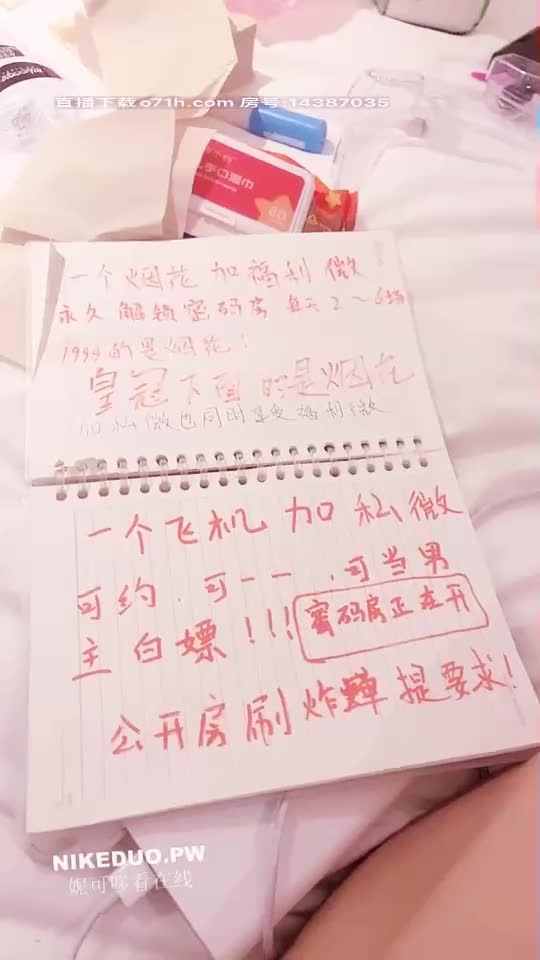 直播下载o71h.com 房号:14387035
手口湿巾
一个烟花 加福利微
永久解锁密码房 每天2～6场
1999的是烟花！
皇冠下面的是烟花
加私微也同时享受福利微
一个飞机 加私微
可约、可一一、可当男
主白嫖!!!
密码房正在开
公开房刷炸弹提要求!
NIKEDUO.PW
妮可哆看在线